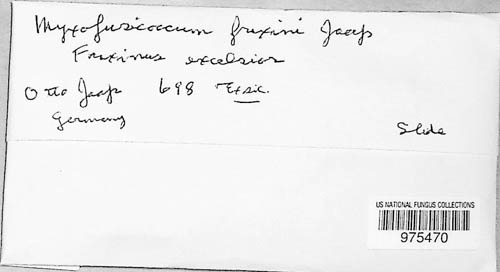 Myxofusicoccum fraxini Jaap
Fraxinus excelsior
Otto Jaap 698 Exsic.
Germany
Slide
US NATIONAL FUNGUS COLLECTIONS
975470